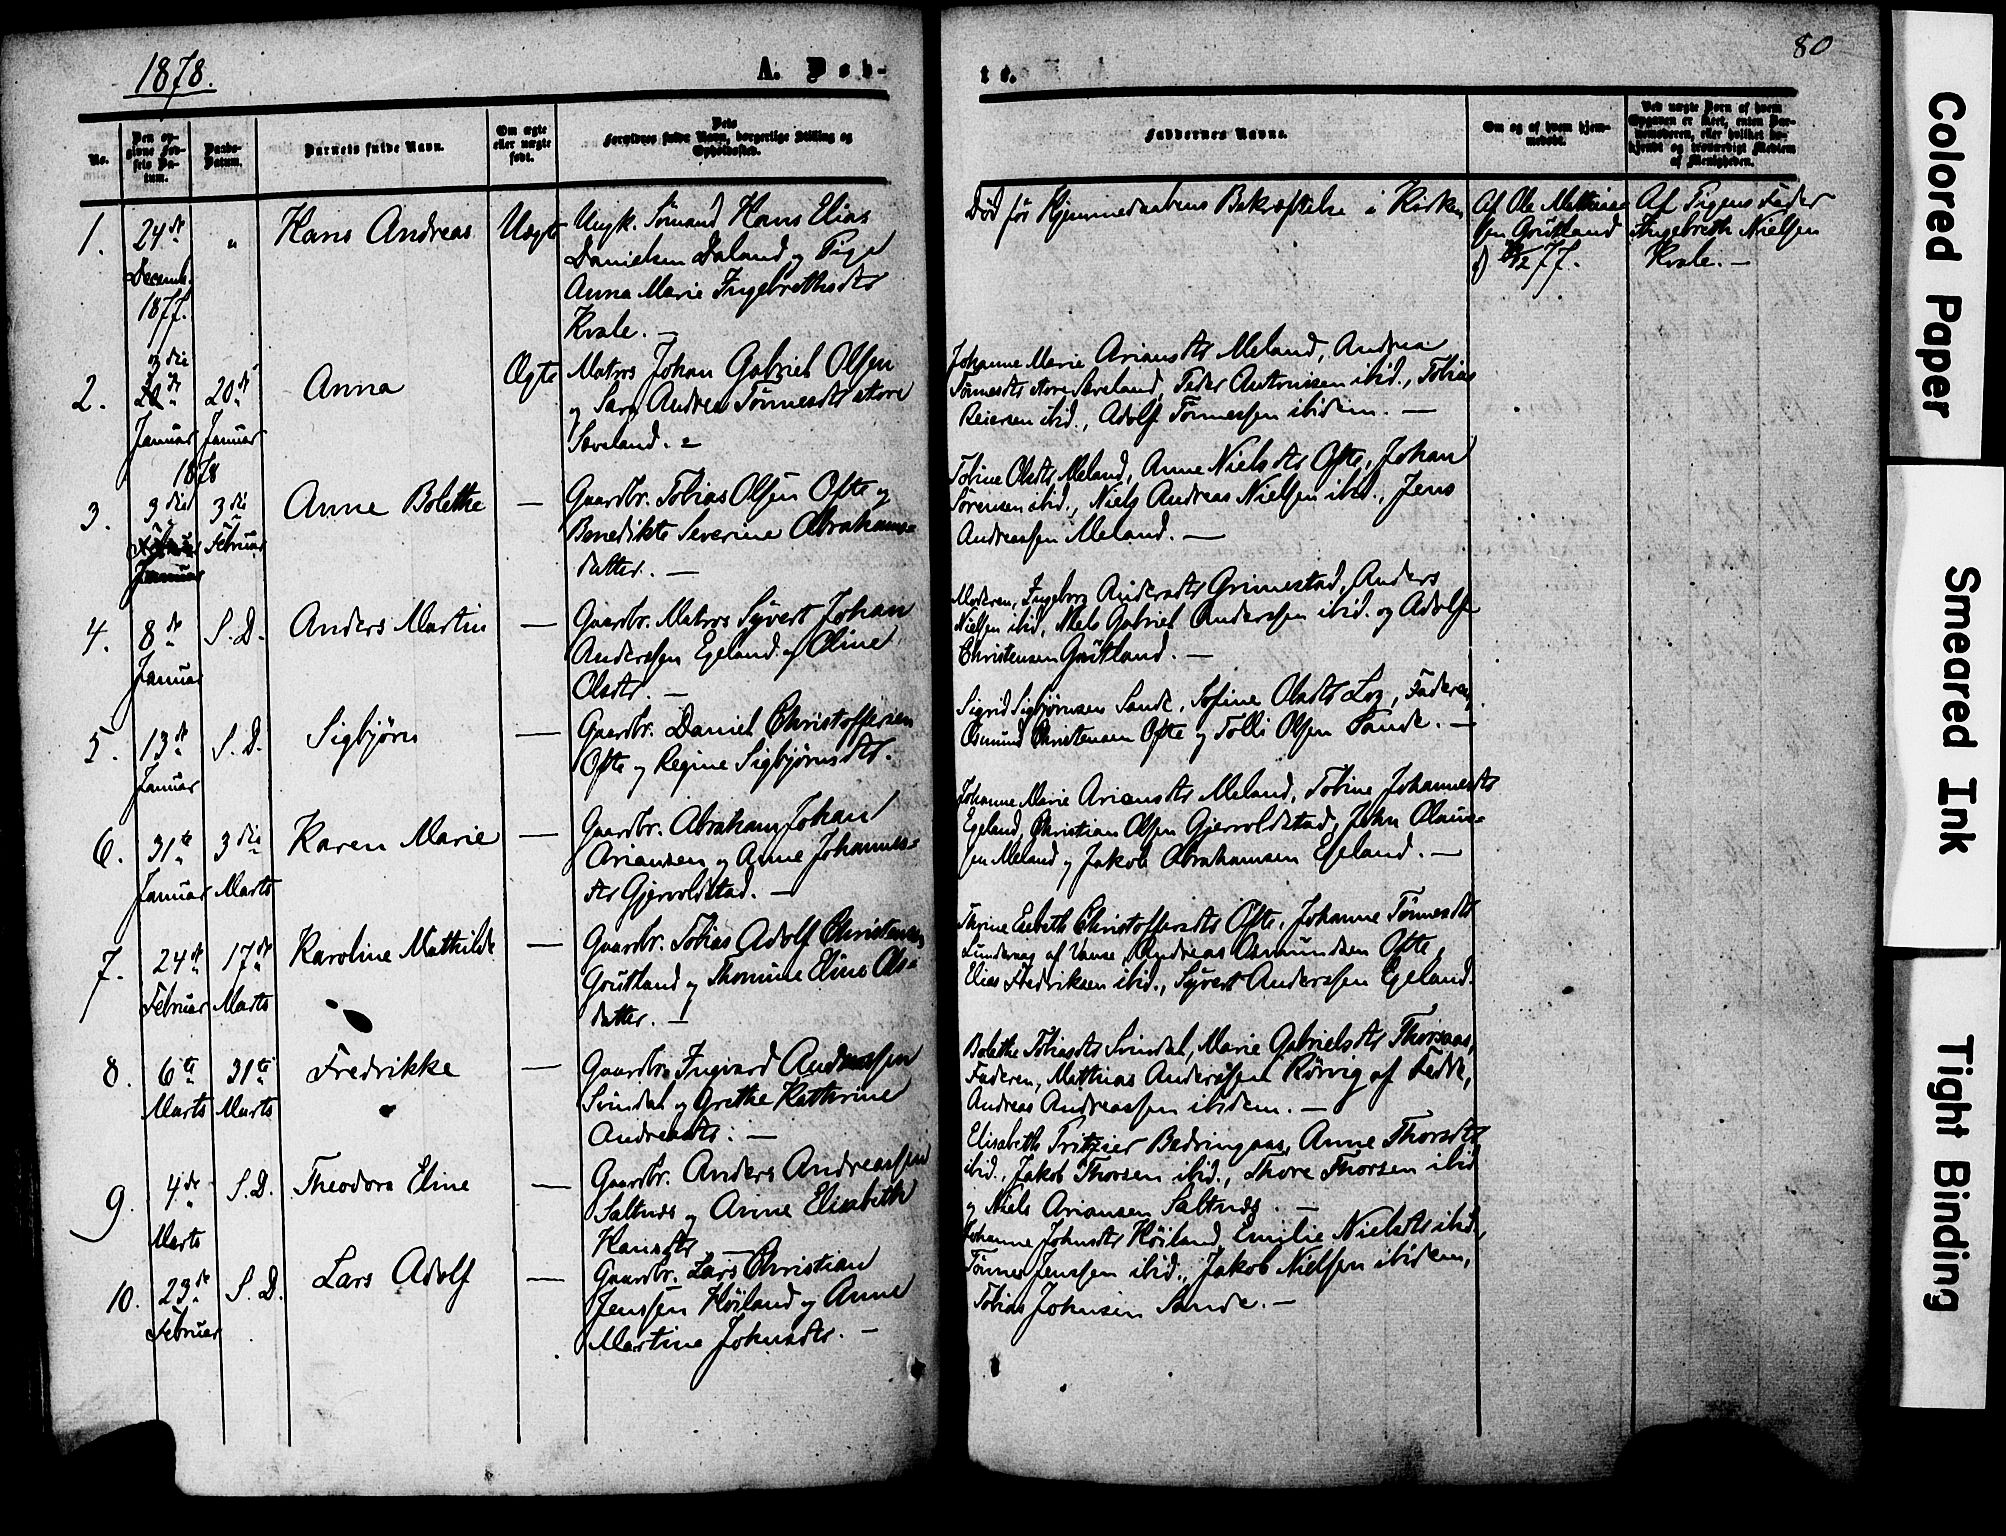 1878.
A. Døb-
te.
80
No.
Den opgivne Fødsels Datum.
Daabs-Datum.
Barnets fulde Navn.
Om ægte eller uægte født.
Dets Forældres fulde Navn, borgerlige Stilling og Opholdssted.
Faddernes Navne.
Om og af hvem hjemmedøbt.
Ved uægte Børn af hvem Opgaven er skeet, enten Barnemoderen, eller hvilket bekjendt og troværdigt Medlem af Menigheden.
1.
24de
Decemb.
1877.
"
Hans Andreas
Uægte
Ungk. Sømand Hans Elias
Danielsen Daland og Pige
Anna Marie Ingebrethsdtr
Kvale. —
Død før Hjemmedaabens Bekræftelse i Kirken
Af Ole
Grütland
77.
Af Pigens Fader
Ingebreth Nielsen
Kvale. —
2.
3die
Januar
1878
20de
Januar
Anna
Ægte
Matros Johan Gabriel Olsen
og Sara Andrea Tønnesdtr store
Seveland. =
Johanne Marie Ariansdtr Meland, Andrea
Tønnesdtr store Seveland, Peder Antonisen ibid., Tobias
Reiersen ibid., Adolf Tønnessen ibidem. —
3.
3die
Januar
3die
Februar
Anne Bolette
—
Gaardbr. Tobias Olsen Ofte og
Benedikte Severine Abrahams=
datter. —
Tobine Olsdtr Meland, Anne Nielsdtr Ofte, Johan
Sørensen ibid., Niels Andreas Nielsen ibid., Jens
Andreassen Meland. —
4.
8de
Januar
S. D.
Anders Martin
—
Gaardbr. Matros Syvert Johan
Anderssen Egeland og Oline
Olsdtr. —
Moderen, Ingeborg Andersdtr Grimestad, Anders
Nielsen ibid, Niels Gabriel Anderssen ibid. og Adolf
Christensen Grütland. —
5.
13de
Januar
S. D.
Sigbjørn
—
Gaardbr. Daniel Christoffersen
Ofte og Regine Sigbjørnsdtr.
Sigrid Sigbjørnsen Sande, Sofine Olsdtr Log, Faderen,
Osmund Christensen Ofte og Tolli Olsen Sande. —
6.
31te
Januar
3die
Marts
Karen Marie
—
Gaardbr. Abraham Johan
Ariansen og Anne Johannes=
dtr Gjervoldstad. —
Johanne Marie Ariansdtr Meland, Tobine Johannesdtr
Egeland, Christian Olsen Gjervoldstad, John Olaus=
sen Meland og Jakob Abrahamsen Egeland. —
7.
24de
Februar
17de
Marts
Karoline Mathilde
—
Gaardbr. Tobias Adolf Christensen
Grütland og Thomine Eline Ols=
datter. —
Thrine Elisbeth Christoffersdtr Ofte, Johanne Tønnesdtr
af Vanse, Andreas Osmundsen Ofte,
Elias Fredriksen ibid., Syvert Anderssen Egeland.
8.
6te
Marts
31te
Marts
Fredrikke
—
Gaardbr. Ingvard Andreassen
Svindal og Grethe Kathrine
Andreasdtr. —
Bolette Tobiasdtr Svindal, Marie Gabrielsdtr Thorsaas,
Faderen, Matthias Anderssen Rørvig af Fedde,
Andreas Andreassen ibidem. —
9.
4de
Marts
S. D.
Theodora Eline
—
Gaardbr. Anders Andreassen
Saltnæs og Anne Elisabeth
Hansdtr —
Elisabeth Fritzier Bedringaas, Anne Thorsdtr
ibid., Jakob Thorsen ibid., Thore Thorsen ibid
og Niels Ariansen Saltnæs. —
10.
23de
Februar
S. D.
Lars Adolf
—
Gaardbr. Lars Christian
Jenssen Høiland og Anne
Martine Johnsdtr. —
Johanne Johnsdtr Høiland, Emilie Nielsdtr ibid.,
Tønnes Jenssen ibid., Jakob Nielsen ibidem,
Tobias Johnsen Sande. —
Colored Paper
Smeared Ink
Tight Binding